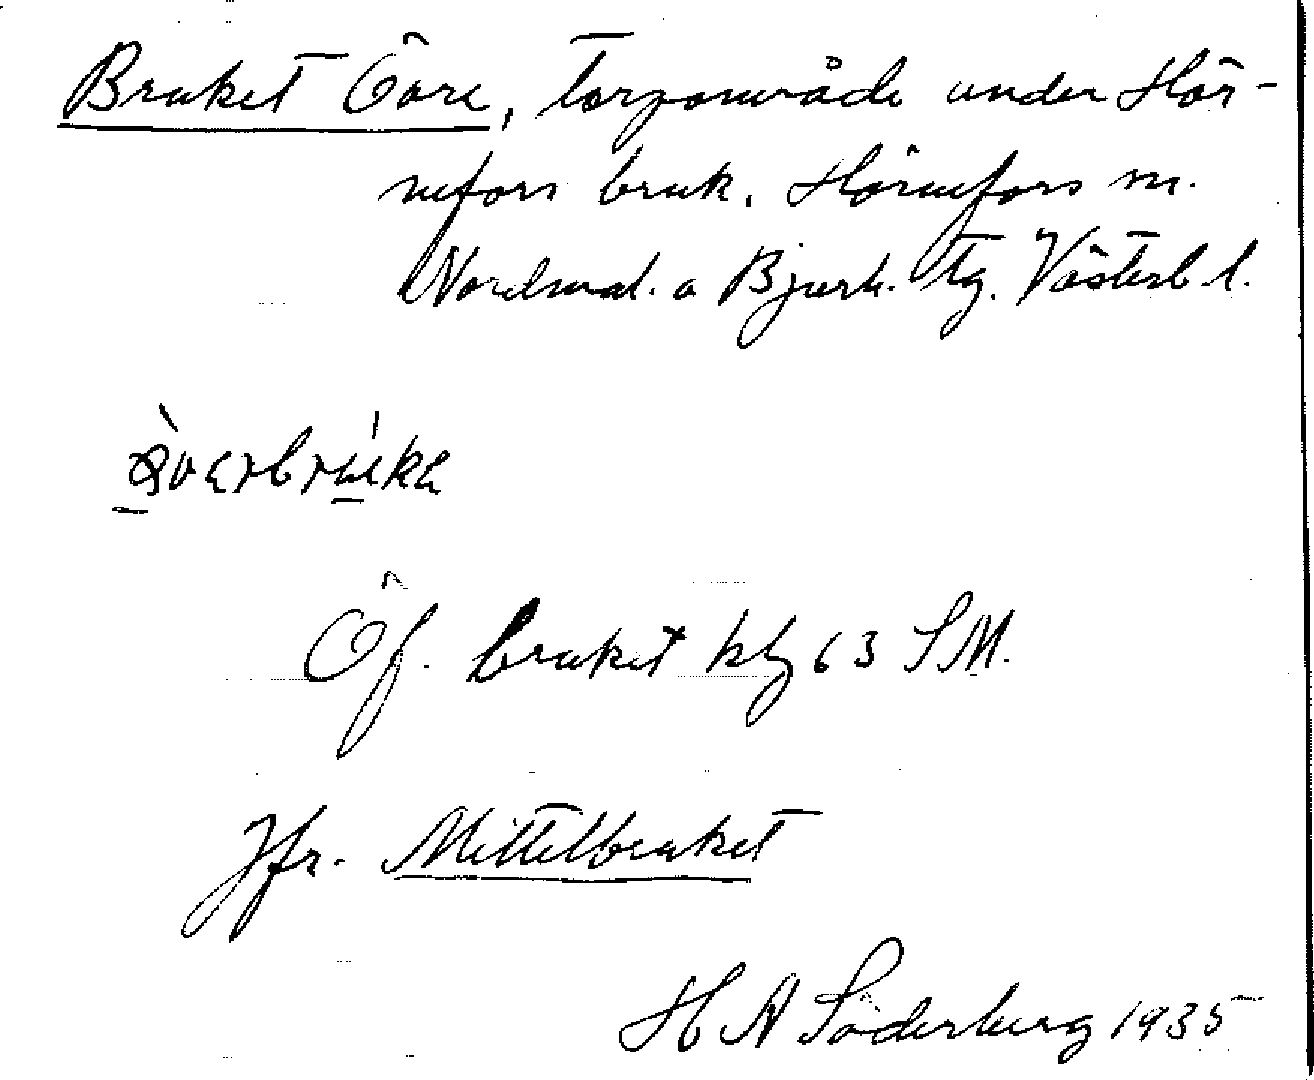 Bruket Övre, torpområde under Hör-
nefors bruk. Hörnefors m.
Nordmal. o Bjurh. tg. Västerb l.
Öf. bruket kbg 63 SM.
Jfr. Mittelbruket
H A Söderberg 1935